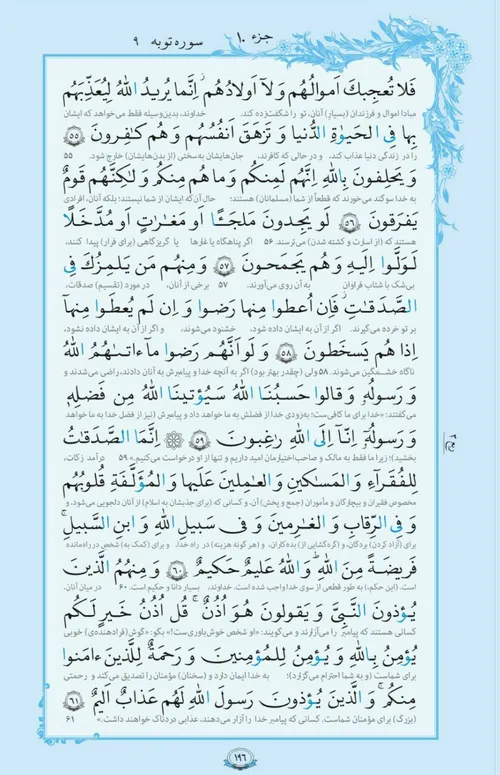 جزء ۱۰
سوره توبه ۹
فَلا تُعجِبكَ اَموالُهُم وَ لآ اَولادُهُم ۚ اِنَّما يُريدُ اللهُ لِيُعَذِّبَهُم
مبادا اموال و فرزندان (بسیارِ) آنان، تو را شگفت‌زده کند. خداوند، بدین‌وسیله فقط می‌خواهد که ایشان
بِها فِى الحَيوٰةِ الدُّنيا وَ تَزهَقَ اَنفُسُهُم وَ هُم كـٰفِرونَ ﴿۵۵﴾
را در زندگی دنیا عذاب کند، و در حالی که کافرند، جان‌هایشان به‌سختی (از بدن‌هایشان) خارج شود. ۵۵
وَ يَحلِفونَ بِاللهِ اِنَّهُم لَمِنكُم وَ ما هُم مِنكُم وَ لـٰكِنَّهُم قَومٌ
به خدا سوگند می‌خورند که قطعاً از شما (مسلمانان) هستند؛ حال آن‌که ایشان از شما نیستند؛ بلکه آنان، افرادی
يَفرَقونَ ﴿۵۶﴾ لَو يَجِدونَ مَلجَـًٔا اَو مَغـٰرٰتٍ اَو مُدَّخَلًا
هستند که (از اسارت و کشته شدن) می‌ترسند. ۵۶ اگر پناهگاه یا غارها یا گریزگاهی (برای فرار) پیدا کنند،
لَوَلَّوا اِلَيهِ وَ هُم يَجمَحونَ ﴿۵۷﴾ وَ مِنهُم مَن يَلمِزُكَ فِى
بی‌شک با شتاب فراوان به آن روی می‌آورند. ۵۷ برخی از آنان، در مورد (تقسیم) صدقات،
الصَّدَقـٰتِ فَاِن اُعطوا مِنها رَضوا وَ اِن لَم يُعطَوا مِنهآ
بر تو خرده می‌گیرند. اگر از آن به ایشان داده شود، خشنود می‌شوند، و اگر از آن به ایشان داده نشود،
اِذا هُم يَسخَطونَ ﴿۵۸﴾ وَ لَو اَنَّهُم رَضوا مآ ءاتىٰهُمُ اللهُ
ناگاه خشمگین می‌شوند. ۵۸ ولی (چقدر بهتر بود) اگر به آنچه خدا و پیامبرش به آنان دادند، راضی می‌شدند و
وَ رَسولُهُ و وَ قالوا حَسبُنَا اللهُ سَيُؤتينَا اللهُ مِن فَضلِهِ
می‌گفتند: «خدا برای ما کافی‌ست؛ به‌زودی خدا از فضلش به ما خواهد داد و پیامبرش (نیز از فضل خدا به ما خواهد
وَ رَسولُهُ و اِنّآ اِلَى اللهِ رٰغِبونَ ﴿۵۹﴾ ۞ اِنَّمَا الصَّدَقـٰتُ
بخشید)؛ زیرا ما فقط به مالک و صاحب‌اختیارمان امید داریم و تنها از او درخواست می‌کنیم.» ۵۹ درآمد زکات،
لِلفُقَرآءِ وَ المَسـٰكينِ وَ العـٰمِلينَ عَلَيها وَ المُؤَلَّفَةِ قُلوبُهُم
مخصوص فقیران و بیچارگان و مأموران (جمع و پخش) آن، و کسانی که (برای جذبشان به اسلام) از آنان دلجویی می‌شود، و
وَ فِى الرِّقابِ وَ الغـٰرِمينَ وَ فى سَبيلِ اللهِ وَ ابنِ السَّبيلِ ۖ
(برای آزاد کردن) بردگان، و (گره‌گشایی از) بدهکاران، و (هرگونه هزینه) در راه خدا، و برای (کمک به) شخص در راه‌مانده
فَريضَةً مِنَ اللهِ ۗ وَ اللهُ عَليمٌ حَكيمٌ ﴿۶۰﴾ وَ مِنهُمُ الَّذينَ
است. (این حکم)، به طور قطعی از سوی خدا واجب شده است. خداوند، بسیار دانا و حکیم است. ۶۰ در میان آنان،
يُؤذونَ النَّبِىَّ وَ يَقولونَ هُوَ اُذُنٌ ۚ قُل اُذُنُ خَيرٍ لَكُم
کسانی هستند که پیامبر را می‌آزارند و می‌گویند: «او شخص خوش‌باوری‌ست!» بگو: «گوش(فرادهنده‌ی) خوبی
يُؤمِنُ بِاللهِ وَ يُؤمِنُ لِلمُؤمِنينَ وَ رَحمَةٌ لِلَّذينَ ءامَنوا
برای شماست (و به شما احترام می‌گزارد)؛ به خدا ایمان دارد و (سخنان) مؤمنان را تصدیق می‌کند و رحمتی
مِنكُم ۚ وَ الَّذينَ يُؤذونَ رَسولَ اللهِ لَهُم عَذابٌ اَليمٌ ﴿۶۱﴾
(بزرگ) برای مؤمنان شماست. کسانی که پیامبر خدا را آزار می‌دهند، عذابی دردناک خواهند داشت.» ۶۱
۱۹۶